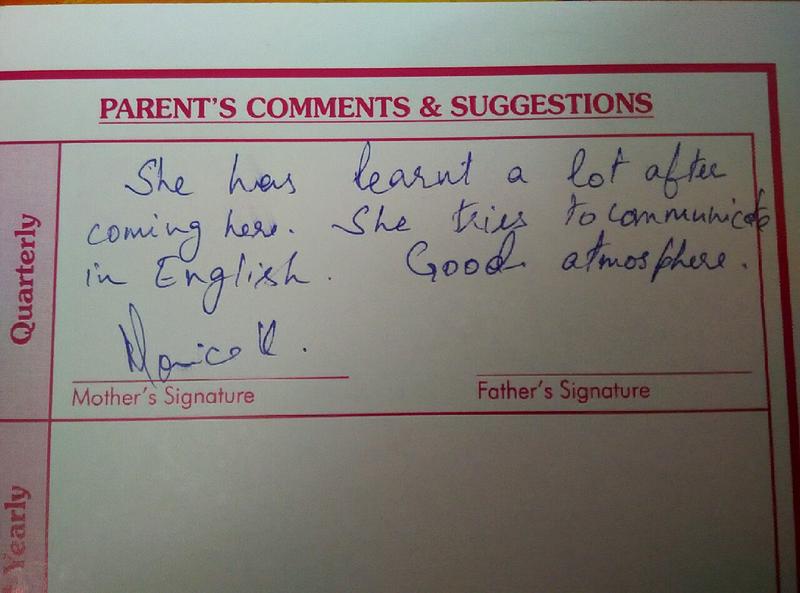 PARENT'S COMMENTS & SUGGESTIONS
Quarterly
She has learnt a lot after
coming here. She tries to communicate
in English. Good atmosphere.
Monica K.
Mother's Signature
Father's Signature
Yearly